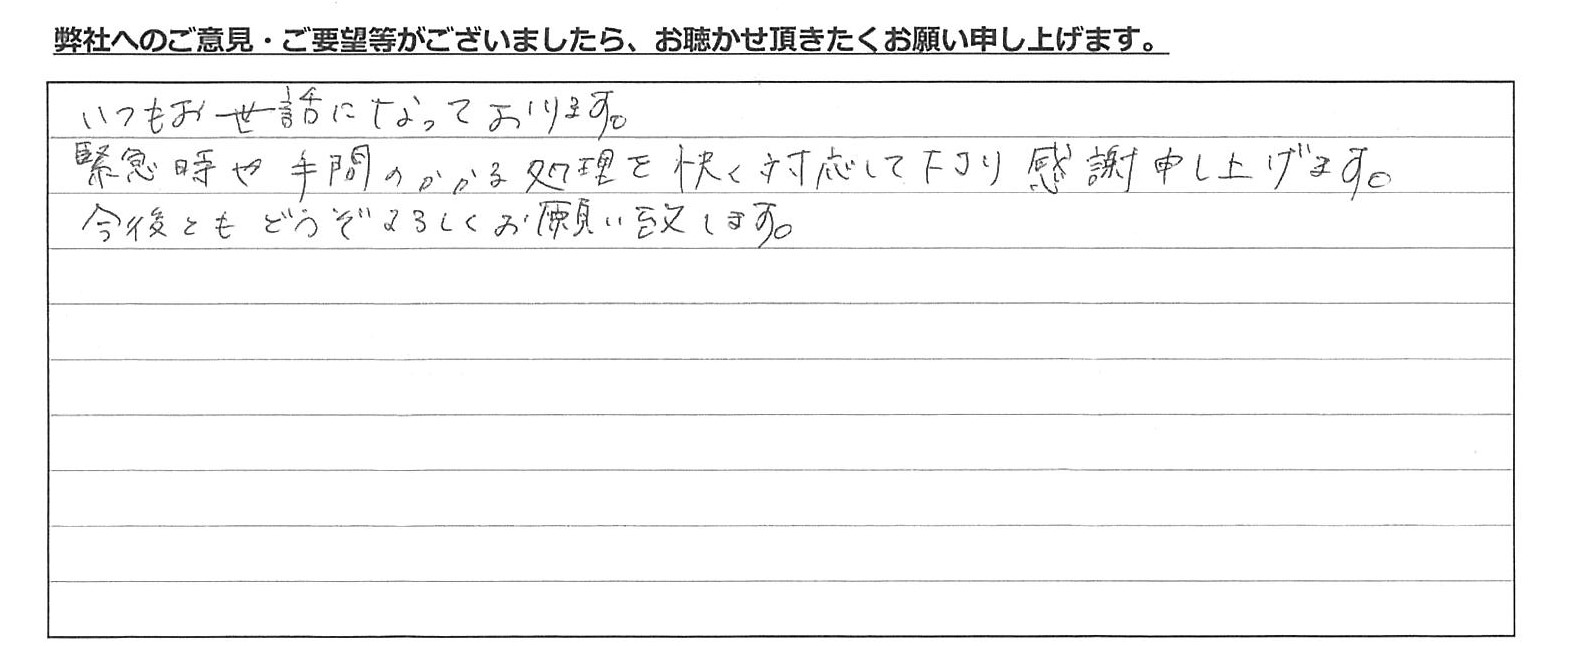 弊社へのご意見・ご要望等がございましたら、お聴かせ頂きたくお願い申し上げます。
いつもお世話になっております。
緊急時や手間のかかる処理を快く対応して下さり感謝申し上げます。
今後ともどうぞよろしくお願い致します。